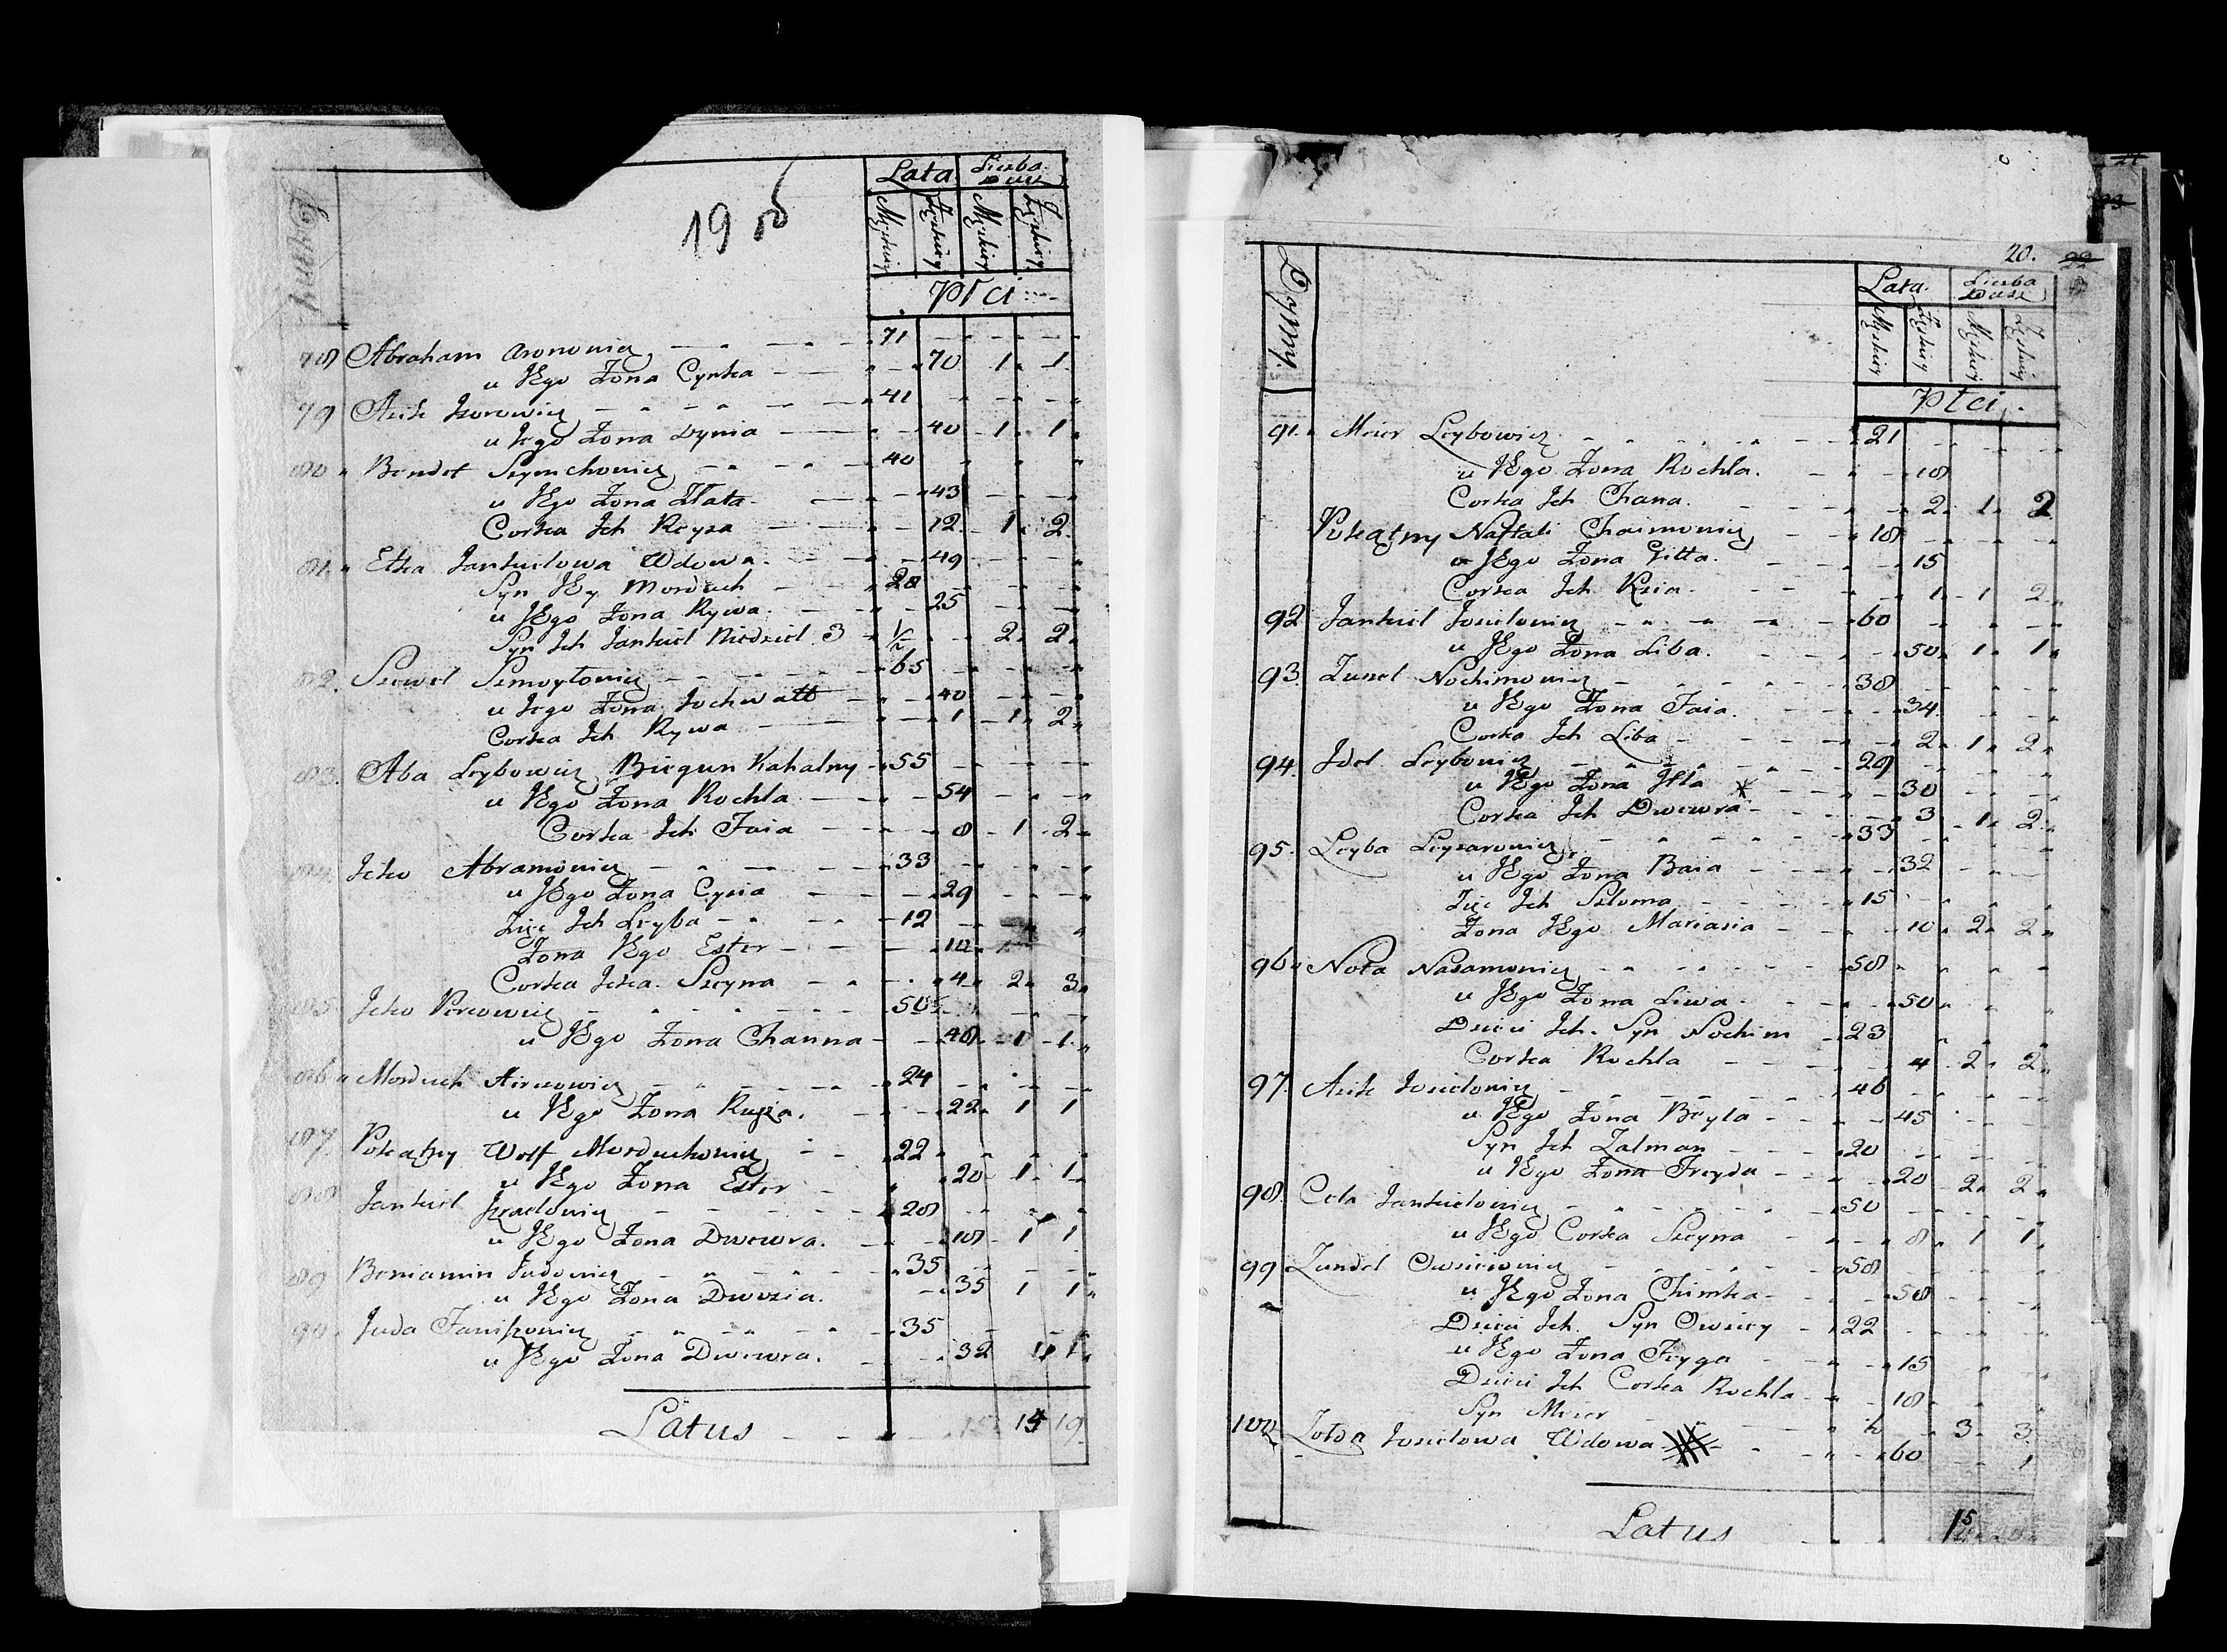 19 об
Dymy
Lata Liczba Dusz
Męskiey Żeńskiey Męskiey Żeńskiey
Płci
78 Abraham Aronowicz 71
u Jego Żona Cynka 70 1 1
79 Aizik Jzorowicz 41
u Jego Żona Dynia 40 1 1
80 Bendet Szymchowicz 40
u Jego Żona Złata 43
Corka Jch Reyza 12 1 2
81 Etka Jankielowa Wdowa 49
Syn Jey Morduch 28
u Jego Żona Rywa 25
Syn Jch Jankiel Niedziel 3 1/2 2 2
82 Szewel Szmoyłowicz 65
u Jego Żona Jochwatt 40
Corka Jch Rywa 1 1 2
83 Aba Leybowicz Biegun Kahalny 55
u Jego Żona Rochla 54
Corka Jch Faia 8 1 2
84 Jcko Abramowicz 33
u Jego Żona Cyria 29
Zięć Jch Leyba 12
Żona Jego Ester 10
Corka Jcka Szeyna 4 2 3
85 Jcko Percowicz 50
u Jego Żona Channa 48 1 1
86 Morduch Hircowicz 24
u Jego Żona Rayza 22 1 1
87 Pokątny Wolf Morduchowicz 22
u Jego Żona Ester 20 1 1
88 Jankiel Jzraelowicz 28
u Jego Żona Dweyra 18 1 1
89 Beniamin Judowicz 35
u Jego Żona Dwozia 35 1 1
90 Juda Faniszowicz 35
u Jego Żona Dweyra 32 1 1
Latus 15 19
20. 22
Dymy
Lata Liczba Dusz
Męskiey Żeńskiey Męskiey Żeńskiey
Płci
91 Meier Leybowicz 21
u Jego Żona Rochla 18
Corka Jch Chana 2 1 2
Pokątny Naftali Chaimowicz 18
u Jego Żona Gitta 15
Corka Jch Kzia 1 1 2
92 Jankiel Josielowicz 60
u Jego Żona Liba 50 1 1
93 Zunel Nochimowicz 38
u Jego Żona Faia 34
Corka Jch Liba 2 1 2
94 Jdel Leybowicz 29
u Jego Żona Jtta 30
Corka Jch Dweyra 3 1 2
95 Leyba Leyzarowicz 33
u Jego Żona Basia 32
Zięć Jch Szloma 15
Żona Jego Mariasia 10 2 2
96 Nota Nasamowicz 58
u Jego Żona Liwa 50
Dzieci Jch Syn Nochim 23
Corka Rochla 4 2 2
97 Aizik Josielowicz 46
u Jego Żona Beyla 45
Syn Jch Zalman 20
u Jego Żona Freyda 20 2 2
98 Cela Jankielowicz 50
u Jego Corka Szeyna 8 1 1
99 Zundel Owsieiowicz 58
u Jego Żona Chimka 58
Dzieci Jch Syn Owsiey 22
u Jego Żona Feyga 15
Dzieci Jch Corka Rochla 18
Syn Meier 3 3
100 Josielowa Wdowa 60 1
Latus 15